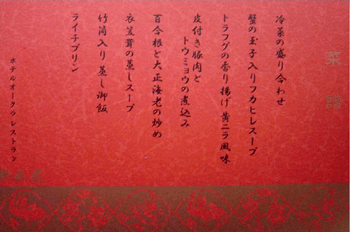 菜譜
冷菜の盛り合わせ
蟹の玉子入りフカヒレスープ
トラフグの香り揚げ 黄ニラ風味
皮付き豚肉と
トウミョウの煮込み
百合根と大正海老の炒め
衣笠茸の蒸しスープ
竹筒入り蒸し御飯
ライチプリン
ホテルオークラレストラン